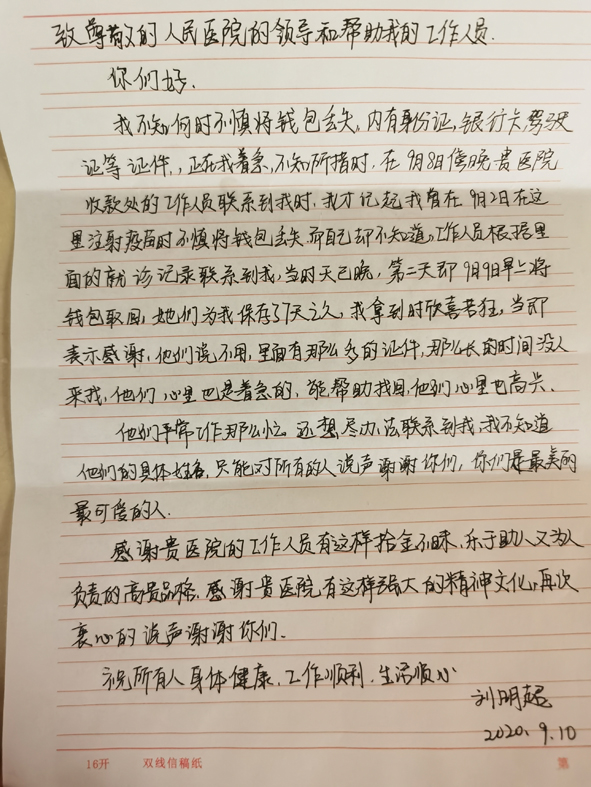 致尊敬的人民医院的领导和帮助我的工作人员.
你们好.
我不知何时不慎将钱包丢失,内有身份证,银行卡,驾驶
证等证件,,正在我着急,不知所措时,在9月8日傍晚贵医院
收款处的工作人员联系到我时,我才记起我曾在9月2日在这
里注射疫苗时不慎将钱包丢失而自己却不知道,工作人员根据里
面的就诊记录联系到我,当时天已晚,第二天即9月9日早上将
钱包取回,她们为我保存了7天之久,我拿到时欣喜若狂,当即
表示感谢,他们说不用,里面有那么多的证件,那么长的时间没人
来找,他们心里也是着急的,能帮助找回,他们心里也高兴.
他们平常工作那么忙,还想尽办法联系到我,我不知道
他们的具体姓名,只能对所有的人说声谢谢你们,你们是最美的
最可爱的人.
感谢贵医院的工作人员有这样拾金不昧,乐于助人又为人
负责的高贵品格,感谢贵医院有这样强大的精神文化,再次
衷心的说声谢谢你们.
祝所有人身体健康,工作顺利,生活顺心
刘明超
2020.9.10
16开 双线信稿纸 第